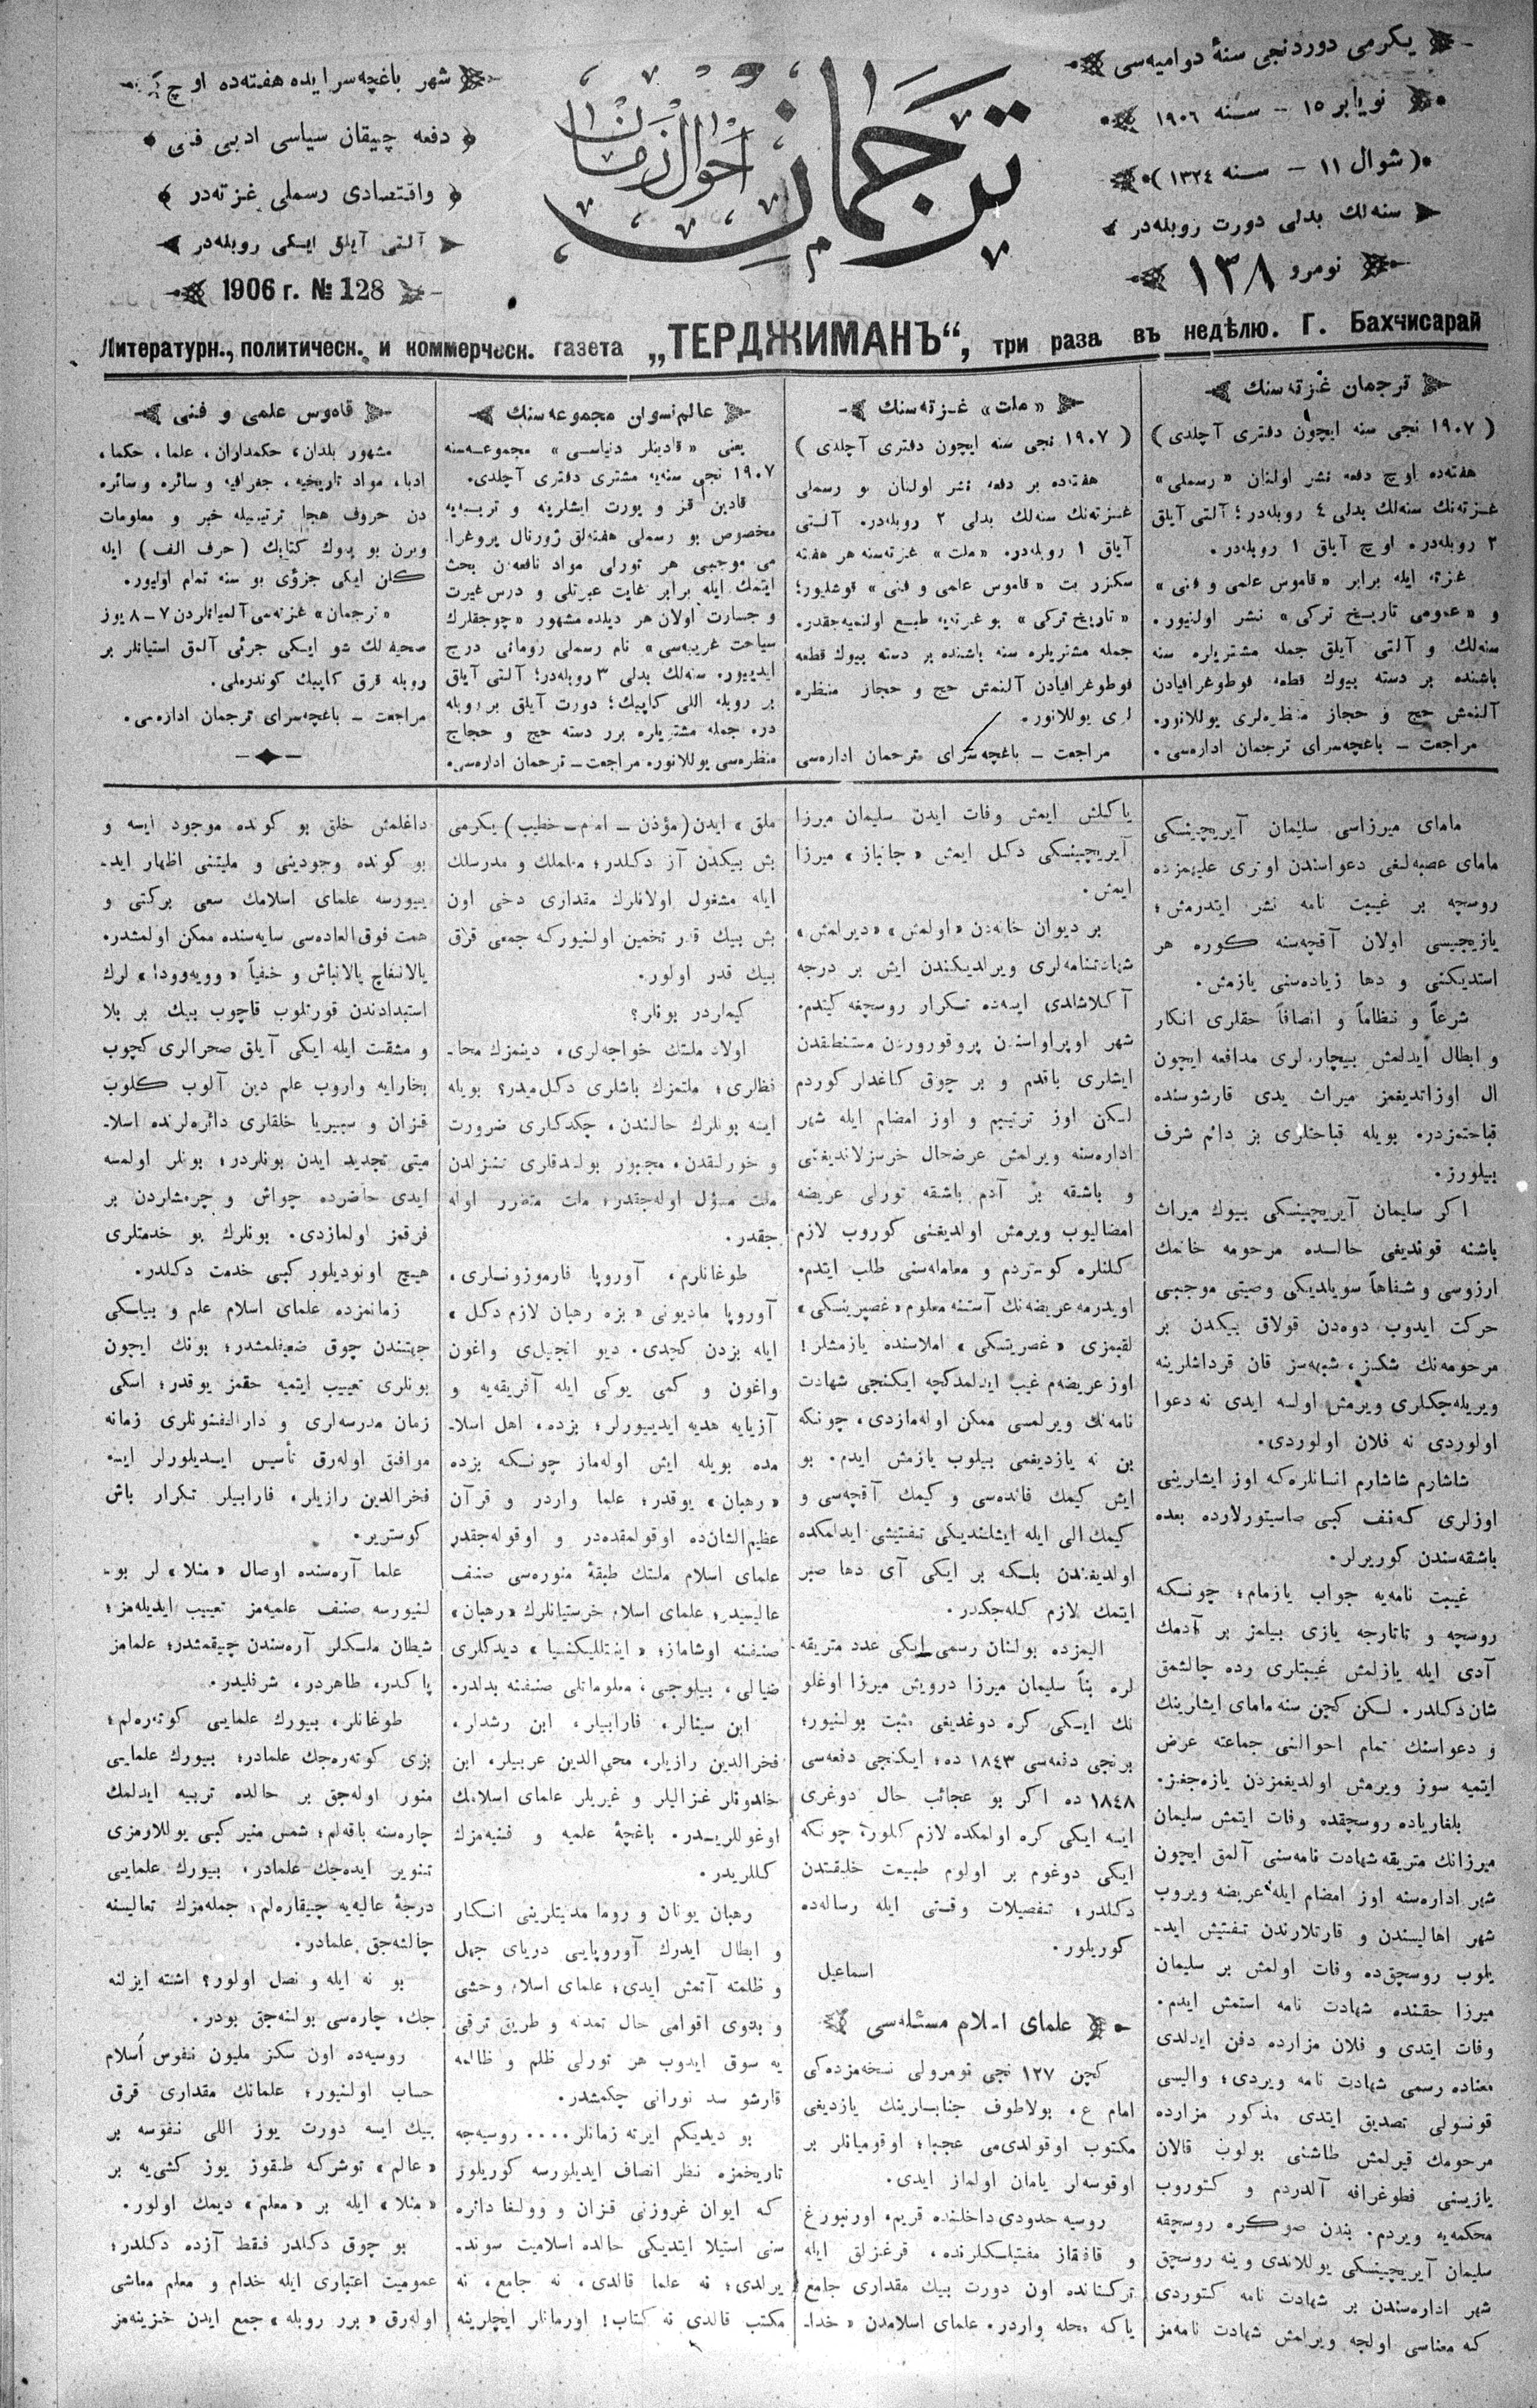 يكرمى دوردنجى سنهٔ دواميه‌سى
نويابر ١٥ – سنه ١٩٠٦
(شوال ١١ – سنه ١٣٢٤)
سنه‌لك بدلى دورت روبله‌در
نومرو ١٣٨
ترجمان
احوال زمان
شهر باغچه‌سرايده هفته‌ده اوچ
دفعه چيقان سياسى ادبى فنى
واقتصادى رسملى غزته‌در
آلتى آيلق ايكى روبله‌در
1906 г. № 128
Литературн., политическ. и коммерческ. газета „ТЕРДЖИМАНЪ“, три раза въ недѣлю. Г. Бахчисарай
ترجمان غزته‌سنك
(١٩٠٧ نجى سنه ايچون دفترى آچلدى)
هفته‌ده اوچ دفعه نشر اولنان «رسملى»
غزته‌نك سنه‌لك بدلى ٤ روبله‌در؛ آلتى آيلق
٢ روبله‌در. اوچ آيلق ١ روبله‌در.
غزته ايله برابر «قاموس علمى و فنى»
و «عمومى تاريخ تركى» نشر اولنيور.
سنه‌لك و آلتى آيلق جمله مشتريلره سنه
باشنده بر دسته بيوك قطعه فوطوغرافيادن
آلنمش حج و حجاز منظره‌لرى يوللانور.
مراجعت – باغچه‌سراى ترجمان اداره‌سى.
«ملت» غزته‌سنك
(١٩٠٧ نجى سنه ايچون دفترى آچلدى)
هفته‌ده بر دفعه نشر اولنان بو رسملى
غزته‌نك سنه‌لك بدلى ٢ روبله‌در. آلتى
آيلق ١ روبله‌در. «ملت» غزته‌سنه هر هفته
سكزر بت «قاموس علمى و فنى» قوشليور؛
«تاريخ تركى» بو غزته‌يه طبع اولنميه‌جقدر.
جمله مشتريلره سنه باشنده بر دسته بيوك قطعه
فوطوغرافيادن آلنمش حج و حجاز منظره
لرى يوللانور.
مراجعت – باغچه‌سراى ترجمان اداره‌سى
عالم نسوان مجموعه‌سنك
يعنى «قادينلر دنياسى» مجموعه‌سنه
١٩٠٧ نجى سنه‌يه مشترى دفترى آچلدى.
قادين قز و يورت ايشلرينه و تربيه‌يه
مخصوص بو رسملى هفته‌لق ژورنال پروغرا
مى موجبى هر تورلى مواد نافعه‌دن بحث
ايتمك ايله برابر غايت عبرتلى و درس غيرت
و جسارت اولان هر ديلده مشهور «چوجقلرك
سياحت غريبه‌سى» نام رسملى رومانى درج
ايديور. سنه‌لك بدلى ٣ روبله‌در؛ آلتى آيلق
بر روبله اللى كاپيك؛ دورت آيلق بر روبله
در. جمله مشتريلره برر دسته حج و حجاج
منظره‌سى يوللانور. مراجعت – ترجمان اداره‌سى.
قاموس علمى و فنى
مشهور بلدان، حكمداران، علما، حكما،
ادبا، مواد تاريخيه، جغرافيه و سائره و سائره
دن حروف هجا ترتيبيله خبر و معلومات
ويرن بو بيوك كتابك (حرف الف) ايله
كلن ايكى جزؤى بو سنه تمام اوليور.
«ترجمان» غزته‌سى آلميانلردن ٧–٨ يوز
صحيفه‌لك شو ايكى جزئى آلمق استيانلر بر
روبله قرق كاپيك كوندرملى.
مراجعت – باغچه‌سراى ترجمان اداره‌سى.
ماماى ميرزاسى سليمان آيريچينسكى
ماماى عصبه‌لغى دعواسندن اوترى عليهمزده
روسچه بر غيبت نامه نشر ايتدرمش؛
يازيجيسى اولان آقچه‌سنه كوره هر
استديكنى و دها زياده‌سنى يازمش.
شرعاً و نظاماً و انصافاً حقلرى انكار
و ابطال ايدلمش بيچاره‌لرى مدافعه ايچون
ال اوزاتديغمز ميراث يدى قارشوسنده
قباحتمزدر. بويله قباحتلرى بز دائم شرف
بيلورز.
اكر سليمان آيريچينسكى بيوك ميراث
باشنه قونديغى حالده مرحومه خانمك
ارزوسى و شفاهاً سويلديكى وصيتى موجبى
حركت ايدوب دوه‌دن قولاق بيكدن بر
مرحومه‌نك شكسز، شبهه‌سز قان قرداشلرينه
ويريله‌جكلرى ويرمش اولسه ايدى نه دعوا
اولوردى نه فلان اولوردى.
شاشارم شاشارم انسانلره كه اوز ايشلرينى
اوزلرى كه‌نف كبى صاسيتورلارده بعده
باشقه‌سندن كوريرلر.
غيبت نامه‌يه جواب يازمام؛ چونكه
روسچه و تاتارجه يازى بيلمز بر آدمك
آدى ايله يازلمش غيبتلرى رده چالشمق
شان دكلدر. لكن كچن سنه ماماى ايشلرينك
و دعواسنك تمام احوالنى جماعته عرض
ايتميه سوز ويرمش اولديغمزدن يازه‌جغز.
بلغارياده روسچقده وفات ايتمش سليمان
ميرزانك متريقه شهادت نامه‌سنى آلمق ايچون
شهر اداره‌سنه اوز امضام ايله عريضه ويروب
شهر اهاليسندن و قارتلارندن تفتيش ايد–
يلوب روسچق‌ده وفات اولمش بر سليمان
ميرزا حقنده شهادت نامه استمش ايدم.
وفات ايتدى و فلان مزارده دفن ايدلدى
معناده رسمى شهادت نامه ويردى؛ واليسى
قونسولى تصديق ايتدى مذكور مزارده
مرحومك قيرلمش طاشنى بولوب قالان
يازيسنى فطوغرافه آلدردم و كتوروب
محكمه‌يه ويردم. بندن صوكره روسچقه
سليمان آيريچينسكى يوللاندى وينه روسچق
شهر اداره‌سندن بر شهادت نامه كتوردى
كه معناسى اولجه ويرلمش شهادت نامه‌مز
ياكلش ايمش وفات ايدن سليمان ميرزا
آيريچينسكى دكل ايمش «جانباز» ميرزا
ايمش.
بر ديوان خانه‌دن «اولمش» «ديرلمش»
شهادتنامه‌لرى ويرلديكندن ايش بر درجه
آكلاشلدى ايسه‌ده تكرار روسچغه كيتدم.
شهر اوپراواسندن پروقوروردن مستنطقدن
ايشلرى باقدم و بر چوق كاغدلر كوردم
لكن اوز ترتيبم و اوز امضام ايله شهر
اداره‌سنه ويرلمش عرضحال خرسزلانديغنى
و باشقه بر آدم باشقه تورلى عريضه
امضاليوب ويرمش اولديغنى كوروب لازم
كلنلره كوستردم و معامله‌سنى طلب ايتدم.
اويدرمه عريضه‌نك آستنه معلوم «غصپرينسكى»
لقبمزى «غصريتسكى» املاسنده يازمشلر!
اوز عريضه‌م غيب ايدلمدكجه ايكنجى شهادت
نامه‌نك ويرلمسى ممكن اوله‌مازدى، چونكه
بن نه يازديغمى بيلوب يازمش ايدم. بو
ايش كيمك فائده‌سى و كيمك آقچه‌سى و
كيمك الى ايله ايشلنديكى تفتيشى ايدلمكده
اولديغندن بلكه بر ايكى آى دها صبر
ايتمك لازم كله‌جكدر.
اليمزده بولنان رسمى ايكى عدد متريقه–
لره بناً سليمان ميرزا درويش ميرزا اوغلو
نك ايكى كره دوغديغى مثبت بولنيور؛
برنجى دفعه‌سى ١٨٤٣ ده، ايكنجى دفعه‌سى
١٨٤٨ ده اكر بو عجائب حال دوغرى
ايسه ايكى كره اولمكده لازم كلور؛ چونكه
ايكى دوغوم بر اولوم طبيعت خلقتندن
دكلدر؛ تفصيلات وقتى ايله رساله‌ده
كوريلور.
اسماعيل
علماى اسلام مسئله‌سى
كچن ١٢٧ نجى نومرولى نسخه‌مزده‌كى
امام ع. بولاطوف جنابلرينك يازديغى
مكتوب اوقولدى‌مى عجبا؛ اوقوميانلر بر
اوقوسه‌لر يامان اولماز ايدى.
روسيه حدودى داخلنده قريم، اورنبورغ
و قافقاز مفتيلكلرنده، قرغزلق ايله
تركستانده اون دورت بيك مقدارى جامع
ياكه محله واردر. علماى اسلامدن «خدا–
ملق» ايدن (مؤذن – امام – خطيب) يكرمى
بش بيكدن آز دكلدر؛ معلملك و مدرسلك
ايله مشغول اولانلرك مقدارى دخى اون
بش بيك قدر تخمين اولنيوركه جمعى قرق
بيك قدر اولور.
كيملردر بونلر؟
اولاد ملتك خواجه‌لرى، دينمزك محا–
فظلرى؛ ملتمزك باشلرى دكل‌ميدر؟ بويله
ايسه بونلرك حالندن، چكدكلرى ضرورت
و خورلقدن، مجبور بولندقلرى تنزلدن
ملت مسؤل اوله‌جقدر؛ ملت متضرر اوله
جقدر.
طوغانلرم، آوروپا فارموزونلرى،
آوروپا ماديونى «بزه رهبان لازم دكل»
ايله بزدن كچدى. ديو انجيلى واغون
واغون و كمى يوكى ايله آفريقه‌يه و
آزيايه هديه ايديورلر؛ بزده، اهل اسلا–
مده بويله ايش اوله‌ماز چونكه بزده
«رهبان» يوقدر؛ علما واردر و قرآن
عظيم‌الشان‌ده اوقولمقده‌در و اوقوله‌جقدر
علماى اسلام ملتك طبقهٔ منوره‌سى صنف
عاليسيدر؛ علماى اسلام خرستيانلرك «رهبان»
صنفنه اوشاماز؛ «اينتلليكنسيا» ديدكلرى
ضيالى، بيلوجى، معلوماتلى صنفنه بدلدر.
ابن سينالر، فارابيلر، ابن رشدلر،
فخرالدين رازيلر، محى‌الدين عربيلر، ابن
خلدونلر غزاليلر و غيريلر علماى اسلامك
اوغوللريدر. باغچهٔ علميه و فنيه‌مزك
كللريدر.
رهبان يونان و روما مدنيتلرينى انكار
و ابطال ايدرك آوروپايى درياى جهل
و ظلمته آتمش ايدى؛ علماى اسلام وحشى
و بدوى اقوامى حال تمدنه و طريق ترقى
يه سوق ايدوب هر تورلى ظلم و ظالمه
قارشو سد نورانى چكمشدر.
بو ديديكم ايرته زمانلر.... روسيه‌جه
تاريخمزه نظر انصاف ايديلورسه كوريلور
كه ايوان غروزنى قزان و وولغا دائره
سنى استيلا ايتديكى حالده اسلاميت سوند–
يرلدى؛ نه علما قالدى، نه جامع، نه
مكتب قالدى نه كتاب! اورمانلر ايچلرينه
داغلمش خلق بو كونده موجود ايسه و
بو كونده وجودينى و مليتنى اظهار ايد–
ييورسه علماى اسلامك سعى بركتى و
همت فوق‌العاده‌سى سايه‌سنده ممكن اولمشدر.
يالانغاچ يالانباش و خفياً «وويه‌وودا» لرك
استبدادندن قورتلوب قاچوب بيك بر بلا
و مشقت ايله ايكى آيلق صحرالرى كچوب
بخارايه واروب علم دين آلوب كلوب
قزان و سيبيريا خلقلرى دائره‌لرنده اسلا–
ميتى تجديد ايدن بونلردر؛ بونلر اولمسه
ايدى حاضرده چواش و چرمشلردن بر
فرقمز اولمازدى. بونلرك بو خدمتلرى
هيچ اونوديلور كبى خدمت دكلدر.
زمانمزده علماى اسلام علم و بيلكى
جهتندن چوق ضعيفلمشدر؛ بونك ايچون
بونلرى تعييب ايتميه حقمز يوقدر؛ اسكى
زمان مدرسه‌لرى و دارالفنونلرى زمانه
موافق اوله‌رق تأسيس ايديلورلر ايسه
فخرالدين رازيلر، فارابيلر تكرار باش
كوسترير.
علما آره‌سنده اوصال «منلا» لر بو–
لنيورسه صنف علميه‌مز تعييب ايديله‌مز؛
شيطان ملكلر آره‌سندن چيقمشدر؛ علمامز
پاكدر، طاهردر، شرفليدر.
طوغانلر، بيورك علمايى كوته‌ره‌لم؛
بزى كوته‌ره‌جك علمادر؛ بيورك علمايى
منور اوله‌جق بر حالده تربيه ايدلمك
چاره‌سنه باقه‌لم؛ شمس منير كبى يوللارمزى
تنوير ايده‌جك علمادر. بيورك علمايى
درجهٔ عاليه‌يه چيقاره‌لم، جمله‌مزك تعاليسنه
چالشه‌جق علمادر.
بو نه ايله و نصل اولور؟ اشته ايزلنه
جك، چاره‌سى بولنه‌جق بودر.
روسيه‌ده اون سكز مليون نفوس اسلام
حساب اولنيور؛ علمانك مقدارى قرق
بيك ايسه دورت يوز اللى نفوسه بر
«عالم» توشركه طقوز يوز كشى‌يه بر
«منلا» ايله بر «معلم» ديمك اولور.
بو چوق دكلدر فقط آزده دكلدر؛
عموميت اعتبارى ايله خدام و معلم معاشى
اوله‌رق «برر روبله» جمع ايدن خزينه‌مز